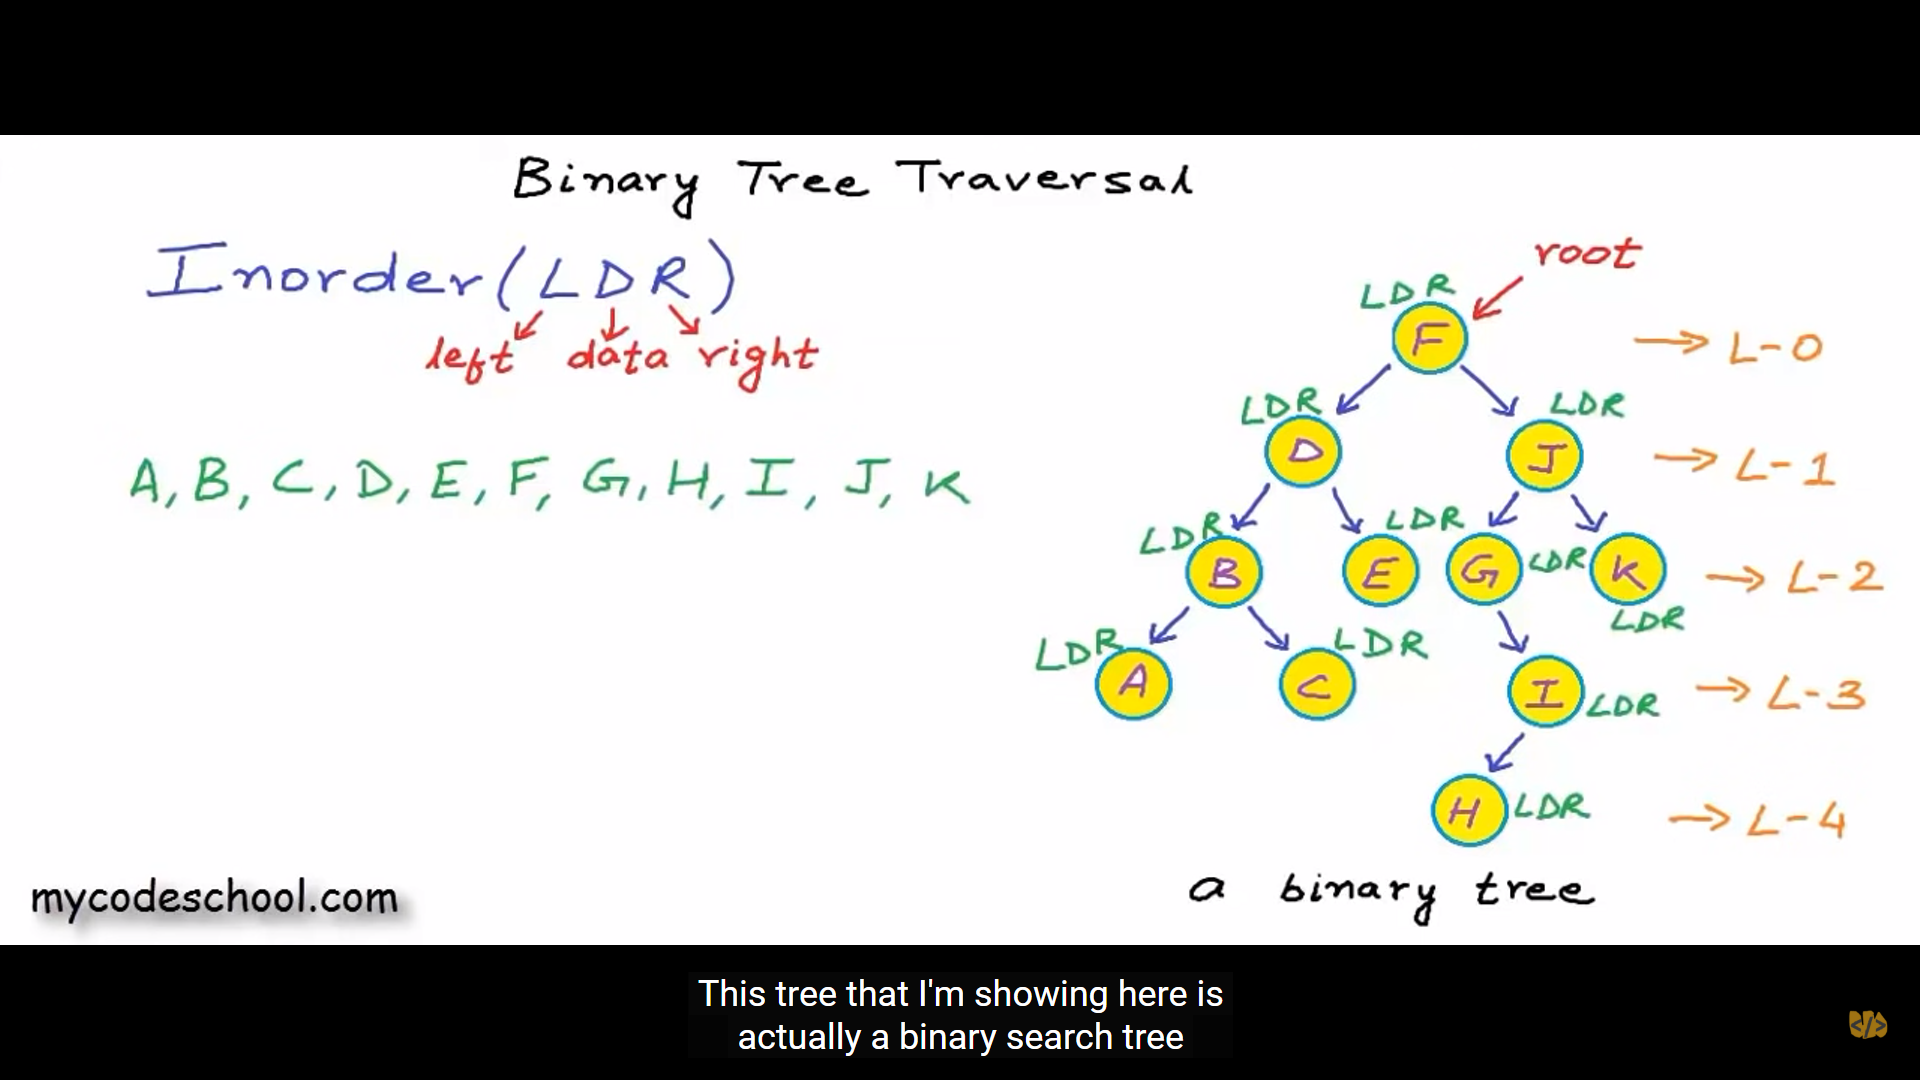 Binary Tree Traversal
Inorder (LDR)
left data right
A, B, C, D, E, F, G, H, I, J, K
root
LDR
F
→ L-0
LDR
LDR
D
J
→ L-1
LDR
LDR
B
E
G
LDR
K
→ L-2
LDR
LDR
LDR
A
C
I
LDR
→ L-3
H
LDR
→ L-4
a binary tree
mycodeschool.com
This tree that I'm showing here is
actually a binary search tree